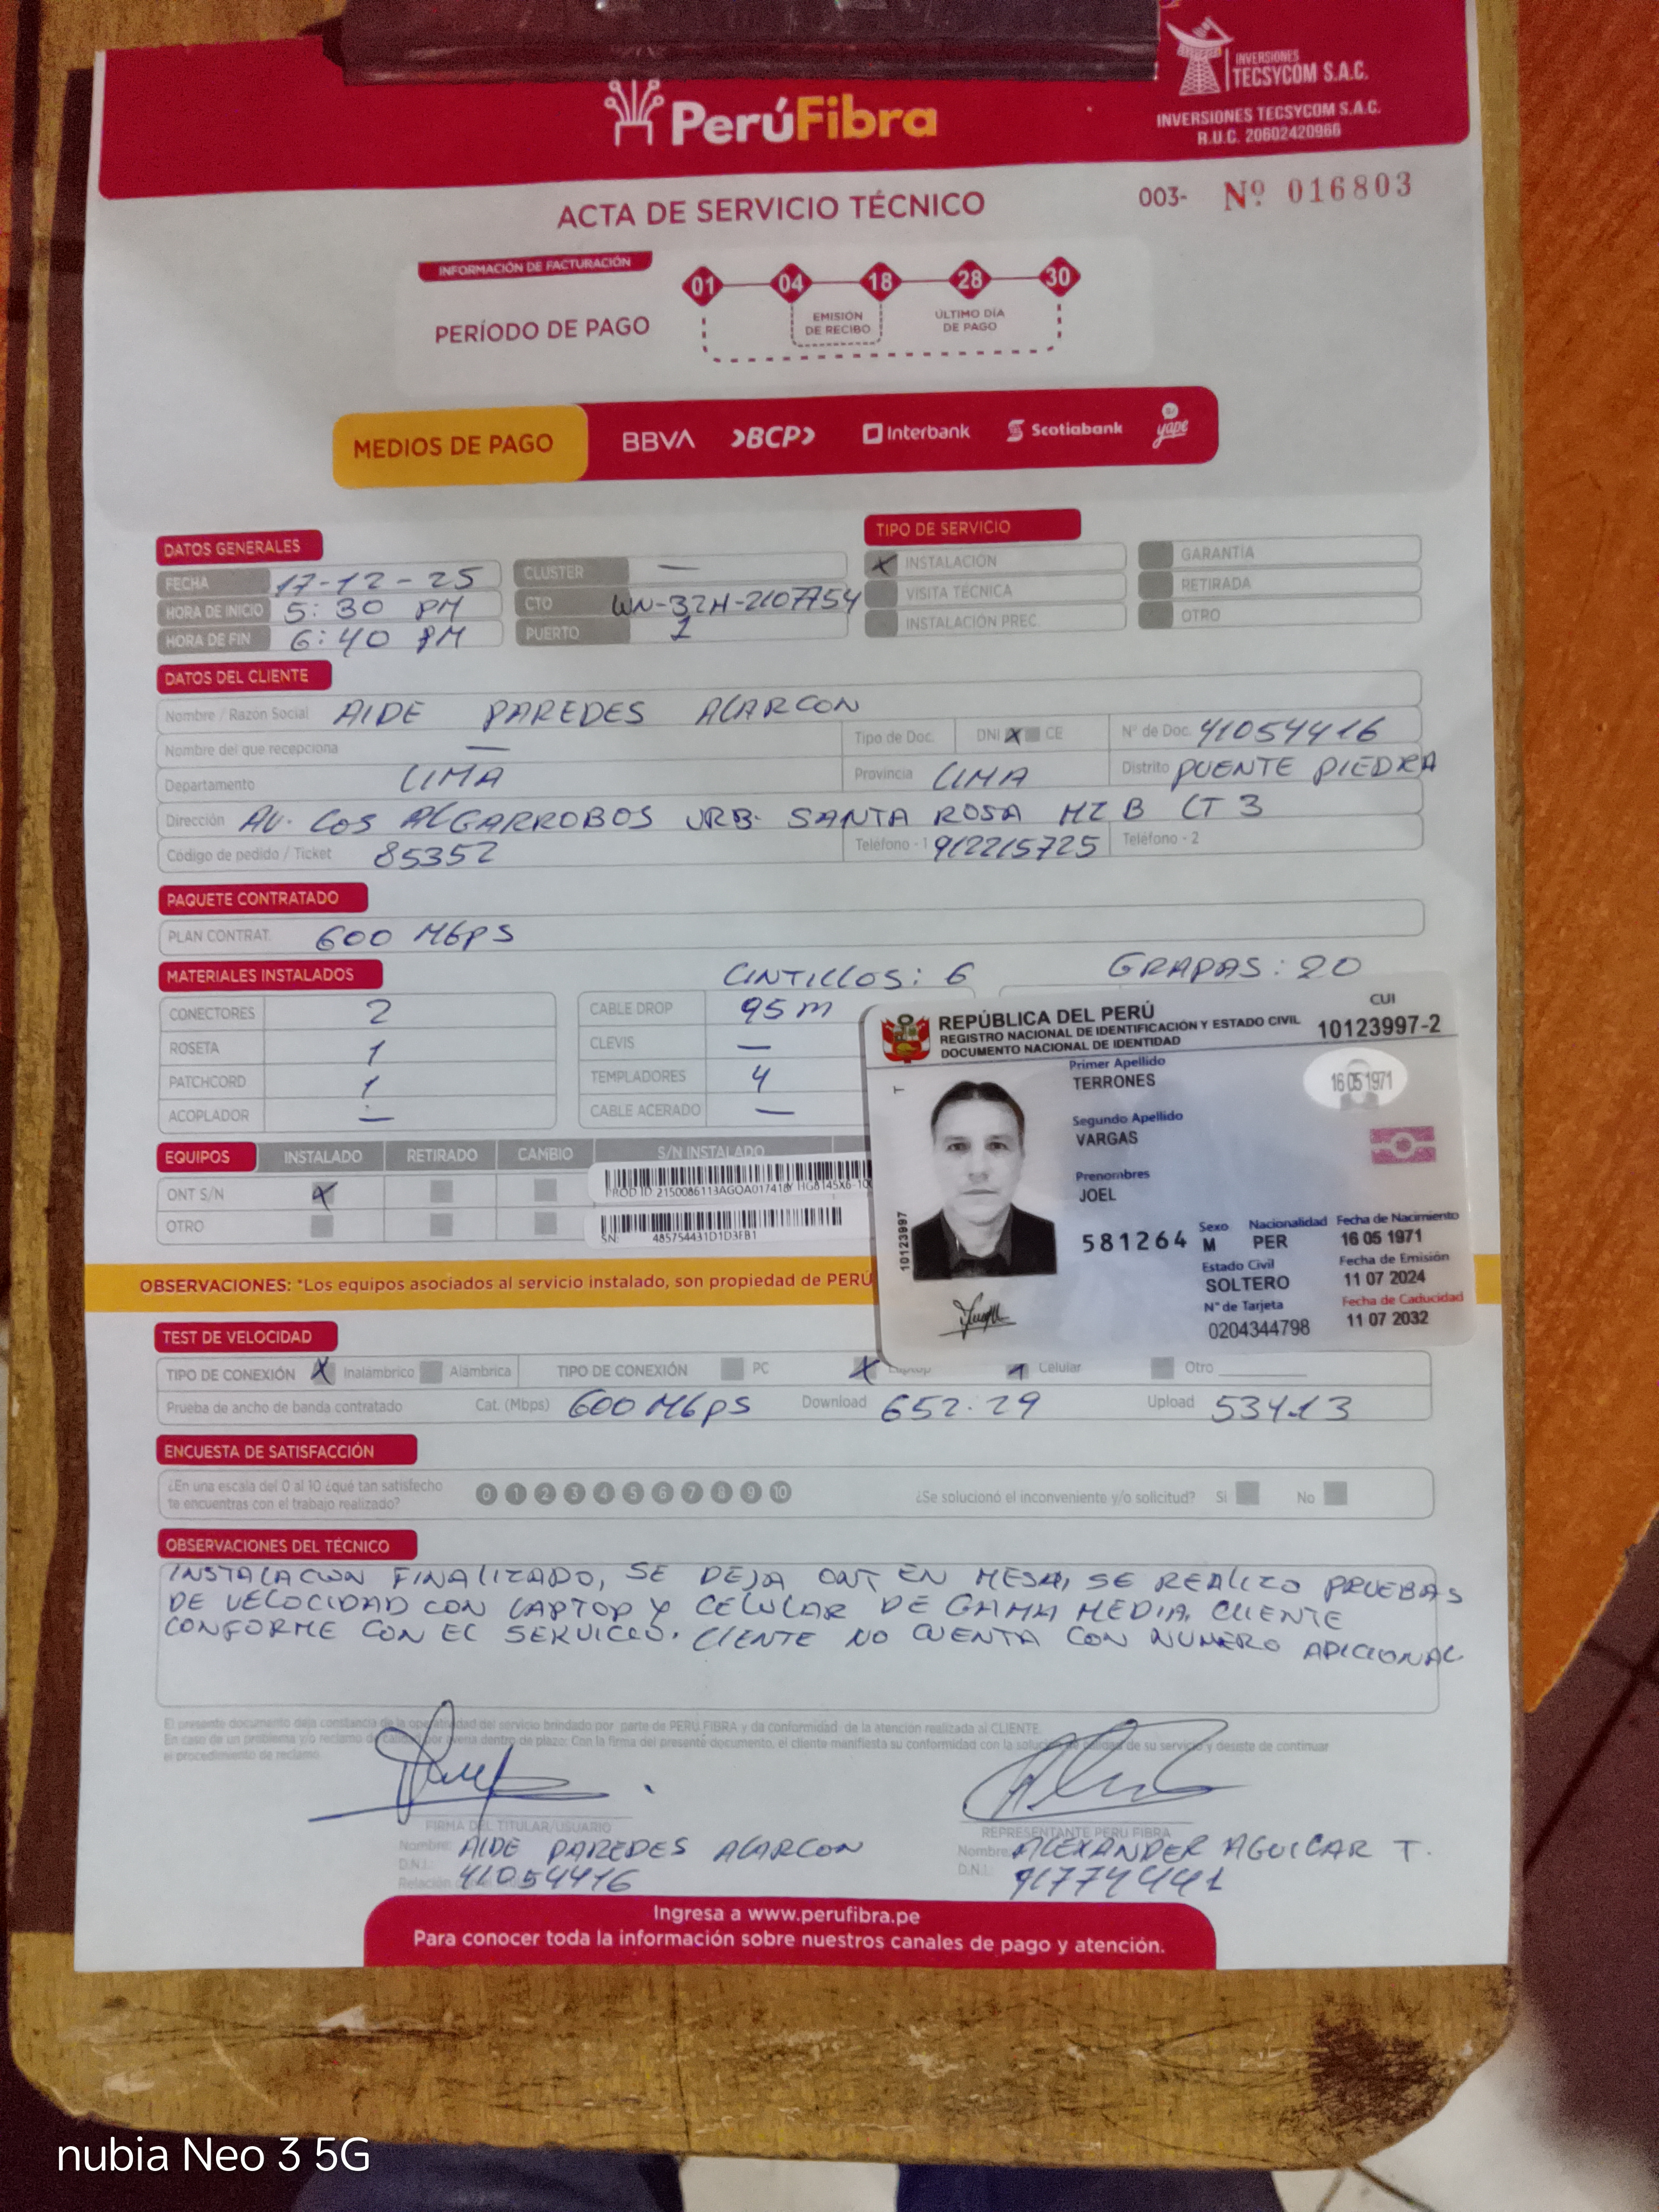 INVERSIONES
TECSYCOM S.A.C.
PerúFibra
INVERSIONES TECSYCOM S.A.C.
R.U.C. 20602420966
ACTA DE SERVICIO TÉCNICO
003- Nº 016803
INFORMACIÓN DE FACTURACIÓN
PERÍODO DE PAGO
01 04 18 28 30
EMISIÓN DE RECIBO
ÚLTIMO DÍA DE PAGO
MEDIOS DE PAGO BBVA BCP Interbank Scotiabank yape
DATOS GENERALES
FECHA 17-12-25
HORA DE INICIO 5:30 PM
HORA DE FIN 6:40 PM
CLUSTER —
CTO WN-32H-2107754
PUERTO 1
TIPO DE SERVICIO
X INSTALACIÓN
VISITA TÉCNICA
INSTALACIÓN PREC.
GARANTÍA
RETIRADA
OTRO
DATOS DEL CLIENTE
Nombre / Razón Social AIDE PAREDES ALARCON
Nombre del que recepciona — Tipo de Doc. DNI X CE Nº de Doc. 41054416
Departamento LIMA Provincia LIMA Distrito PUENTE PIEDRA
Dirección AV. LOS ALGARROBOS URB. SANTA ROSA MZ B LT 3
Código de pedido / Ticket 85352 Teléfono - 1 912215725 Teléfono - 2
PAQUETE CONTRATADO
PLAN CONTRAT. 600 Mbps
MATERIALES INSTALADOS CINTILLOS: 6 GRAPAS: 20
CONECTORES 2
ROSETA 1
PATCHCORD 1
ACOPLADOR —
CABLE DROP 95 m
CLEVIS —
TEMPLADORES 4
CABLE ACERADO —
REPÚBLICA DEL PERÚ
REGISTRO NACIONAL DE IDENTIFICACIÓN Y ESTADO CIVIL
DOCUMENTO NACIONAL DE IDENTIDAD
CUI
10123997-2
Primer Apellido
TERRONES
16 05 1971
Segundo Apellido
VARGAS
Prenombres
JOEL
581264
Sexo Nacionalidad Fecha de Nacimiento
M PER 16 05 1971
Estado Civil Fecha de Emisión
SOLTERO 11 07 2024
Nº de Tarjeta Fecha de Caducidad
0204344798 11 07 2032
10123997
T
EQUIPOS INSTALADO RETIRADO CAMBIO S/N INSTALADO
ONT S/N X
OTRO
SN: 485754431D1D3FB1
OBSERVACIONES: *Los equipos asociados al servicio instalado, son propiedad de PERÚ
TEST DE VELOCIDAD
TIPO DE CONEXIÓN X Inalámbrico Alámbrica TIPO DE CONEXIÓN PC X Laptop X Celular Otro
Prueba de ancho de banda contratado Cat. (Mbps) 600 Mbps Download 652.29 Upload 534.13
ENCUESTA DE SATISFACCIÓN
¿En una escala del 0 al 10 ¿qué tan satisfecho
te encuentras con el trabajo realizado?
0 1 2 3 4 5 6 7 8 9 10
¿Se solucionó el inconveniente y/o solicitud? Si No
OBSERVACIONES DEL TÉCNICO
INSTALACION FINALIZADO, SE DEJA ONT EN MESA, SE REALIZO PRUEBAS
DE VELOCIDAD CON LAPTOP Y CELULAR DE GAMA MEDIA. CLIENTE
CONFORME CON EL SERVICIO. CLIENTE NO CUENTA CON NUMERO ADICIONAL
El presente documento deja constancia de la operatividad del servicio brindado por parte de PERU FIBRA y da conformidad de la atención realizada al CLIENTE.
En caso de un problema y/o reclamo de por avería dentro de plazo: Con la firma del presente documento, el cliente manifiesta su conformidad con la de su servicio y desiste de continuar
el procedimiento de reclamo.
FIRMA DEL TITULAR/USUARIO
Nombre: AIDE PAREDES ALARCON
D.N.I.: 41054416
Relación
REPRESENTANTE PERU FIBRA
Nombre ALEXANDER AGUILAR T.
D.N.I. 917744441
Ingresa a www.perufibra.pe
Para conocer toda la información sobre nuestros canales de pago y atención.
nubia Neo 3 5G